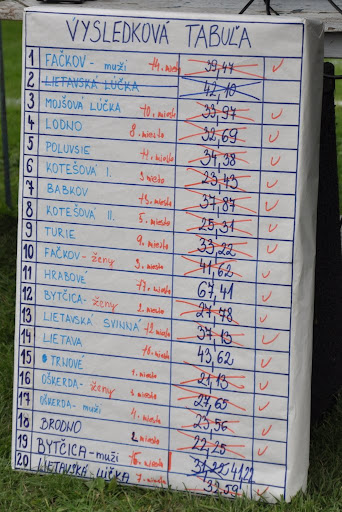 VÝSLEDKOVÁ TABUĽA
1 FAČKOV - muži 14. miesto 39,47
2 LIETAVSKÁ LÚČKA 42,10
3 MOJŠOVA LÚČKA 10. miesto 33,97
4 LODNO 8. miesto 32,69
5 POLUVSIE 11. miesto 34,38
6 KOTEŠOVÁ I. 3 miesto 23,43
7 BABKOV 13. miesto 37,87
8 KOTEŠOVÁ II. 5. miesto 25,31
9 TURIE 9. miesto 33,22
10 FAČKOV - ženy 3. miesto 41,62
11 HRABOVÉ 17. miesto 67,41
12 BYTČICA - ženy 2. miesto 27,78
13 LIETAVSKÁ SVINNÁ 12. miesto 37,13
14 LIETAVA 16. miesto 43,62
15 TRNOVÉ 1. miesto 21,13
16 OŠKERDA - ženy 1. miesto 27,65
17 OŠKERDA - muži 4. miesto 23,56
18 BRODNO 2 miesto 22,25
19 BYTČICA - muži 15. miesto 41,22
20 LIETAVSKÁ LÚČKA 7. miesto 32.59